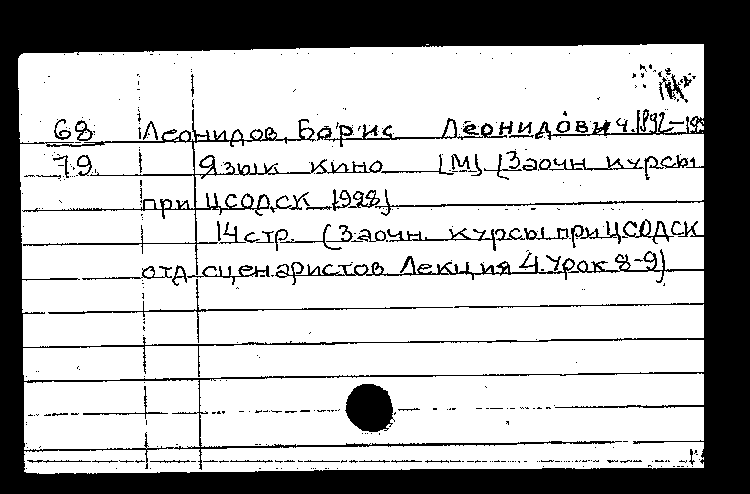 68 Леонидов, Борис Леонидович. 1892-195
79 Язык кино [М]. [Заочн. курсы
при ЦСОДСК 1928]
14 стр. (Заочн. курсы при ЦСОДСК
отд. сценаристов Лекция 4. Урок 8-9)